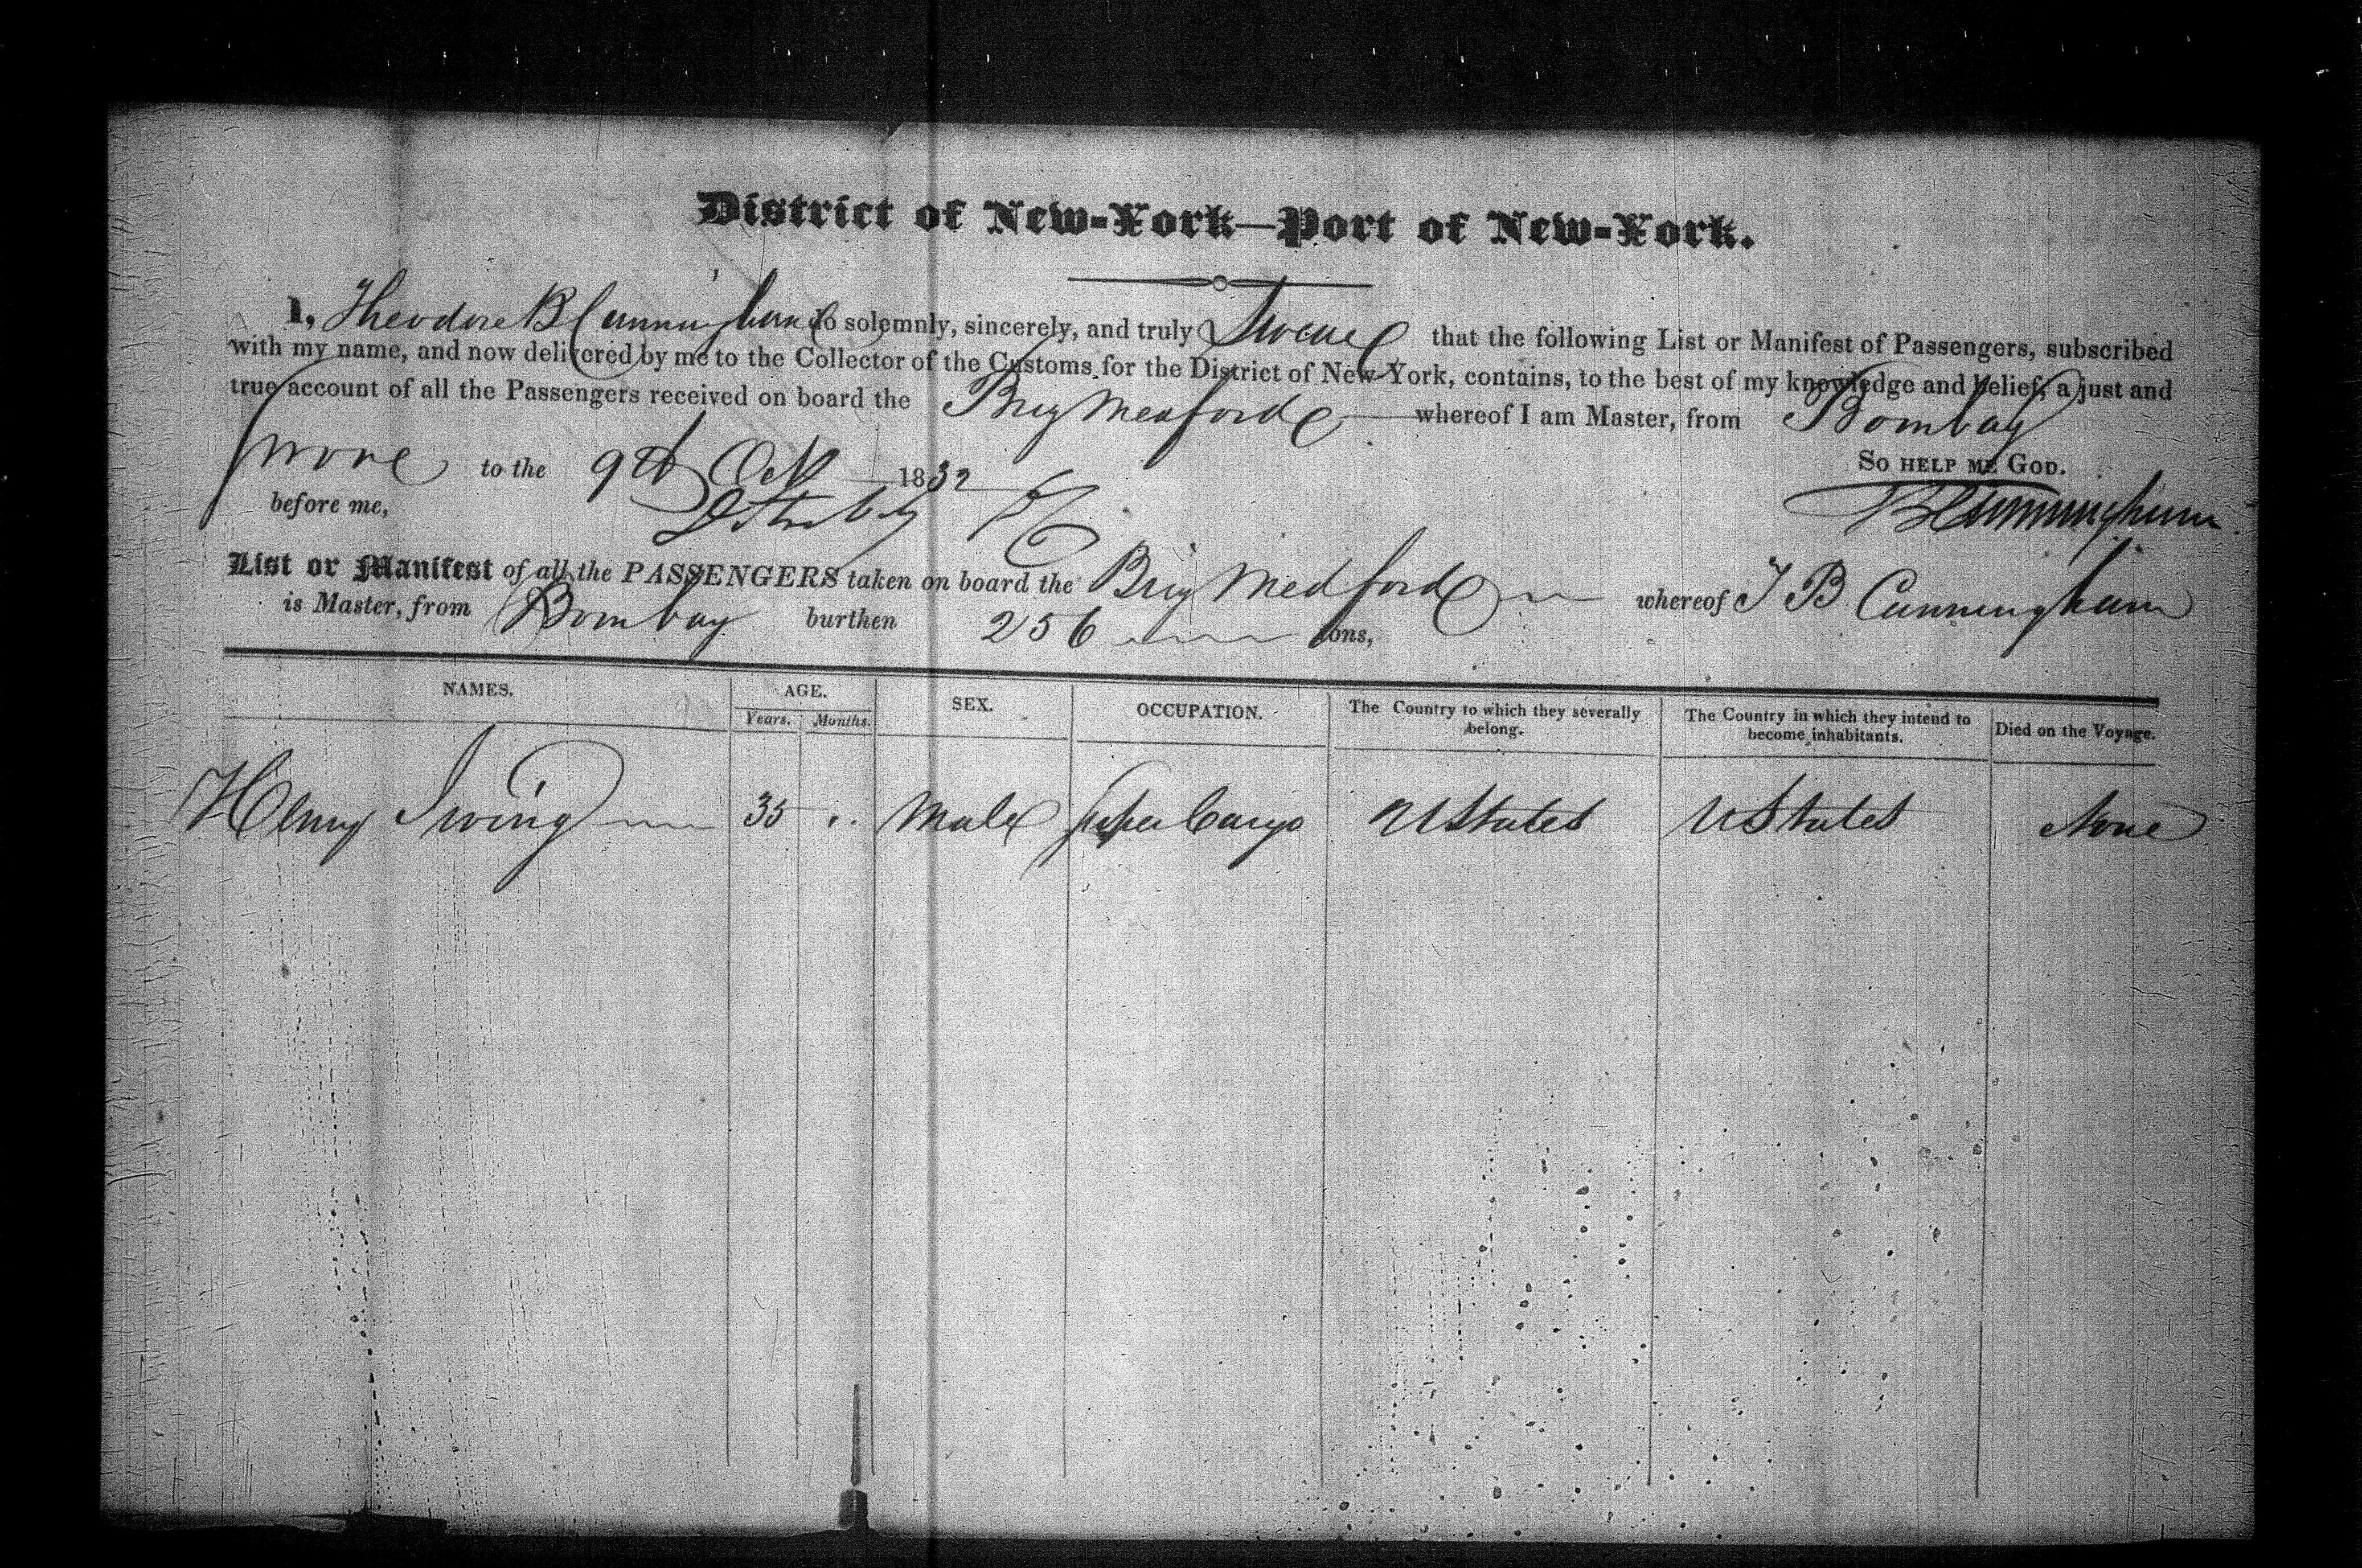 District of New-York—Port of New-York.
I, Theodore B Cunningham do solemnly, sincerely, and truly Swear that the following List or Manifest of Passengers, subscribed
with my name, and now delivered by me to the Collector of the Customs for the District of New-York, contains, to the best of my knowledge and belief, a just and
true account of all the Passengers received on board the Brig Medford whereof I am Master, from Bombay
to the 9th Oct 1832
So HELP ME GOD.
before me,
B Cunningham
List or Manifest of all the PASSENGERS taken on board the Brig Medford whereof T B Cunningham
is Master, from Bombay burthen 256 tons,
NAMES. AGE. SEX. OCCUPATION. The Country to which they severally belong. The Country in which they intend to become inhabitants. Died on the Voyage.
Years. Months.
Henry Irving 35 Male Super Cargo U States U States None